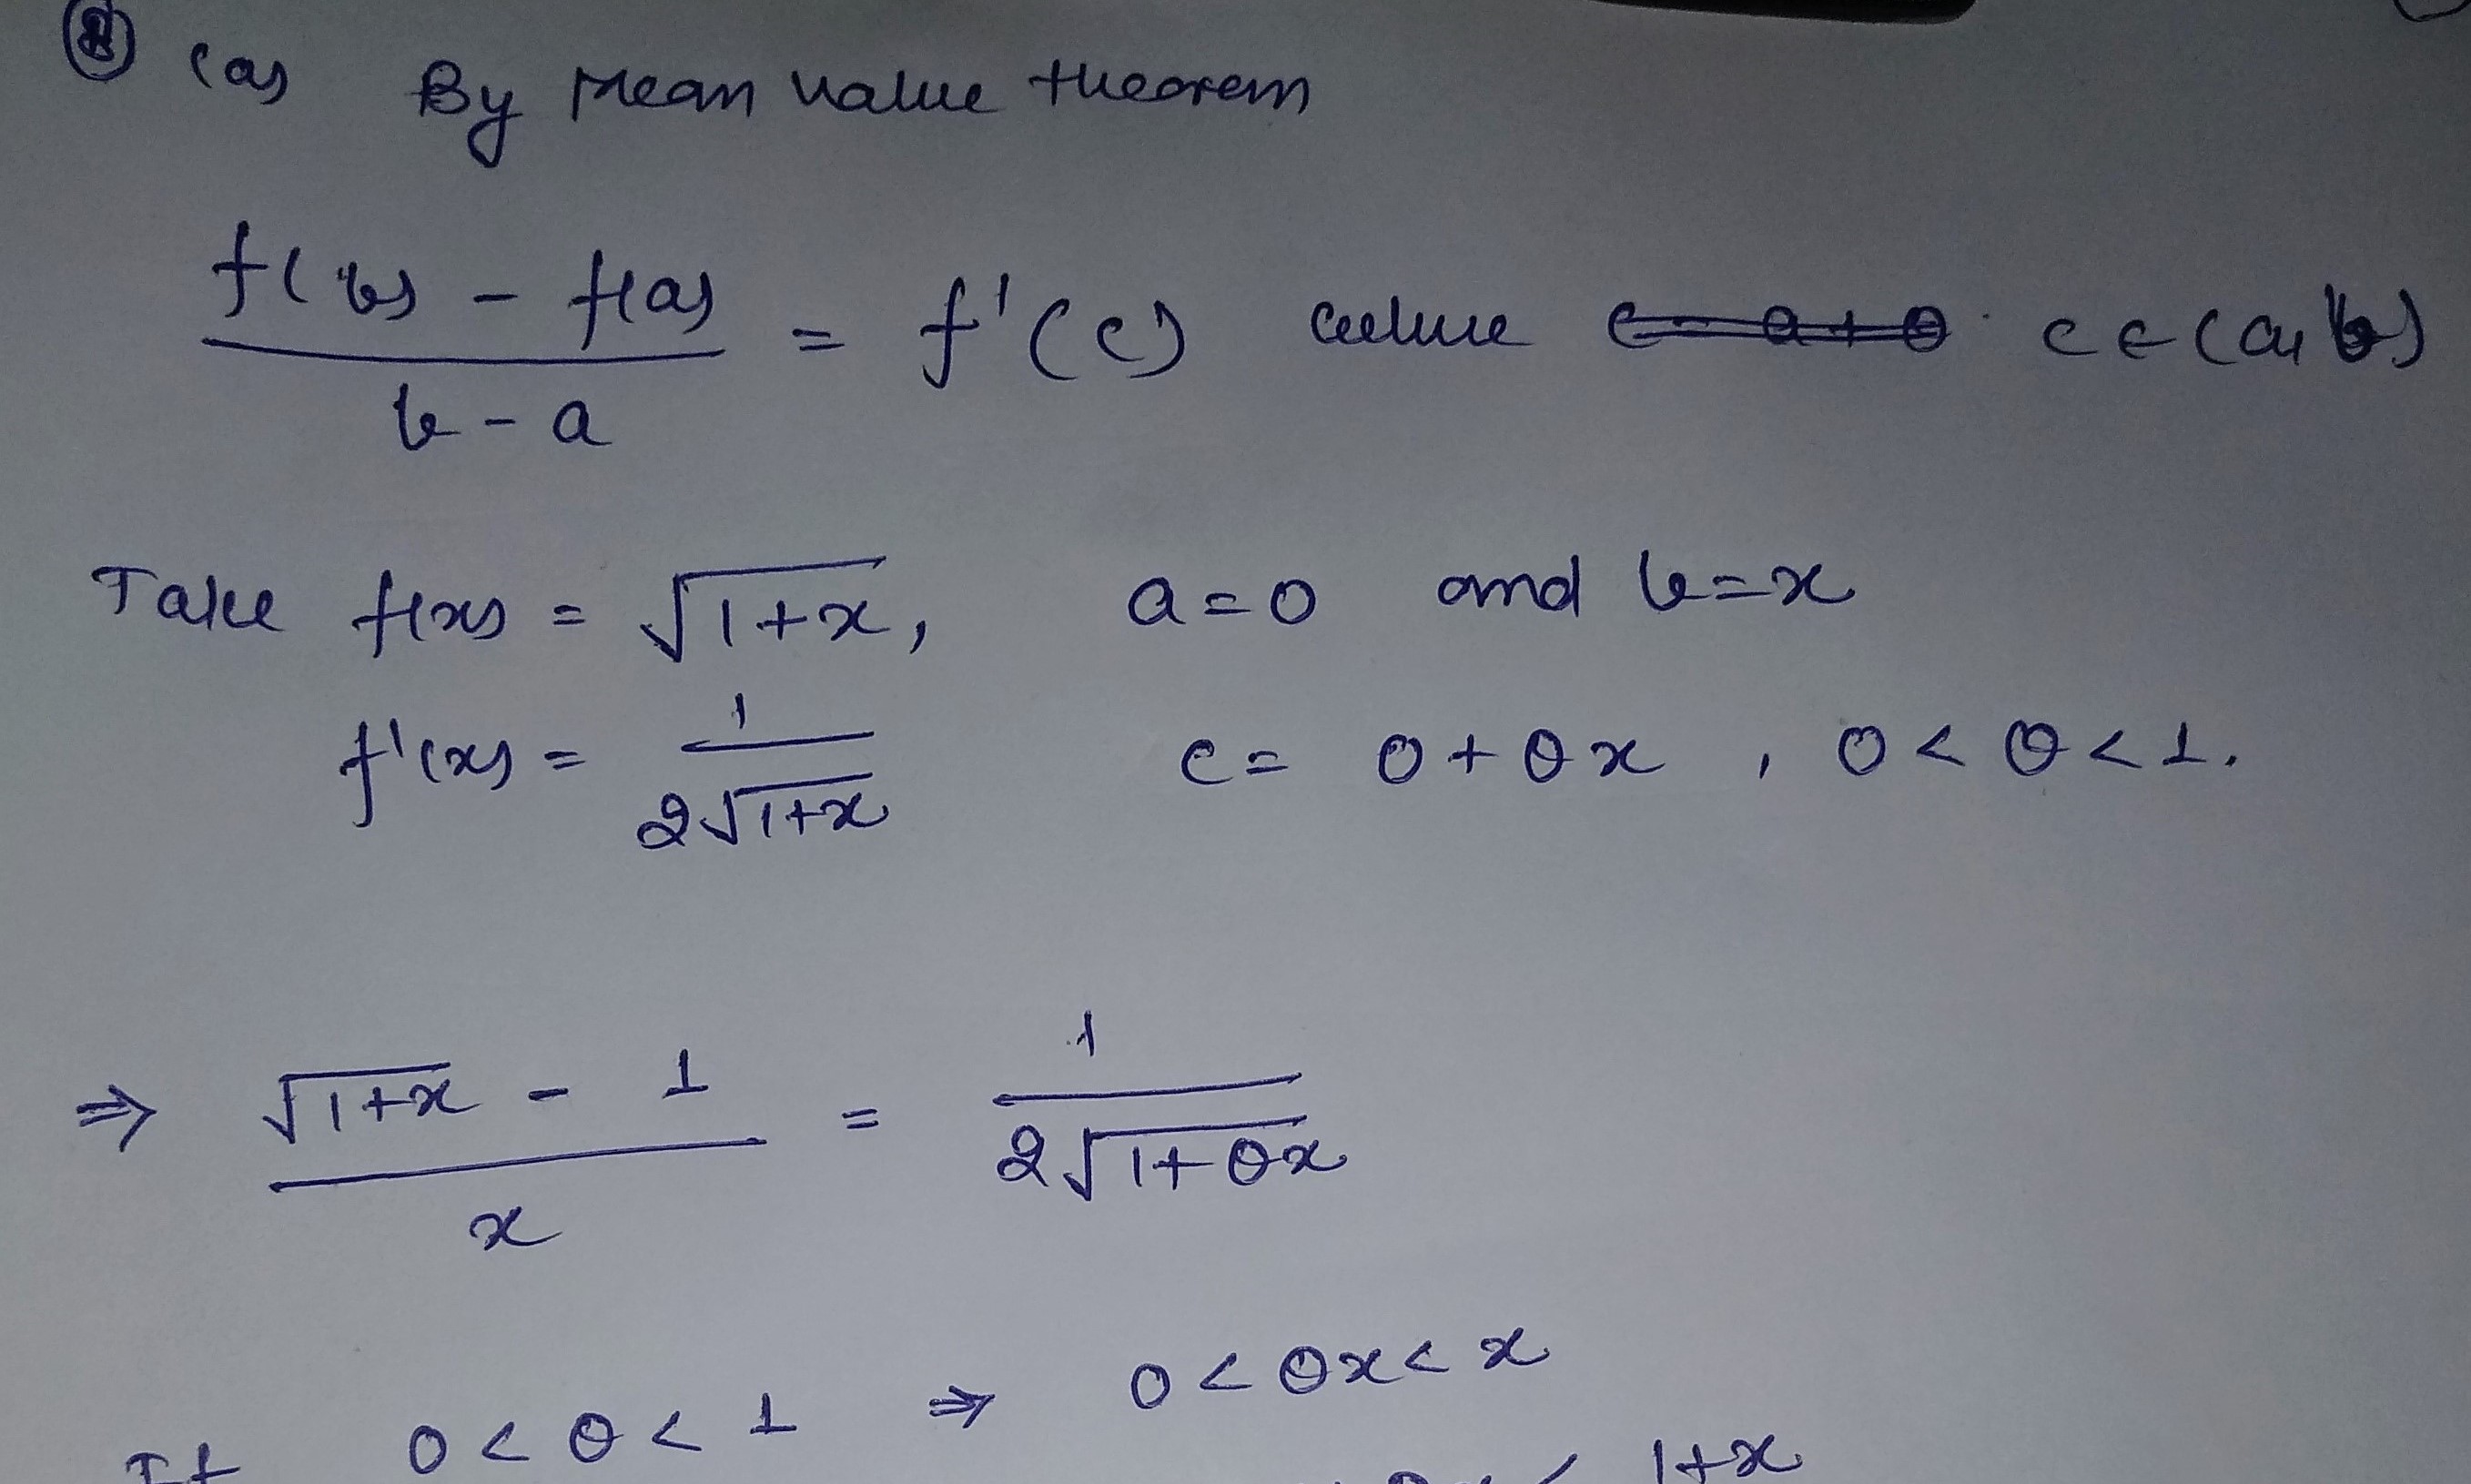 (a) By Mean value theorem
f(b) - f(a) / b - a = f'(c) where c ∈ (a, b)
Take f(x) = √1+x, a = 0 and b = x
f'(x) = 1 / 2√1+x c = 0 + θx , 0 < θ < 1.
⇒ √1+x - 1 / x = 1 / 2√1+θx
If 0 < θ < 1 ⇒ 0 < θx < x
< 1+x